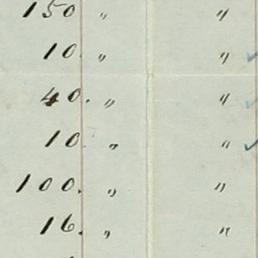 150 " "
10 " "
40. " "
10 " "
100. " "
16. " "